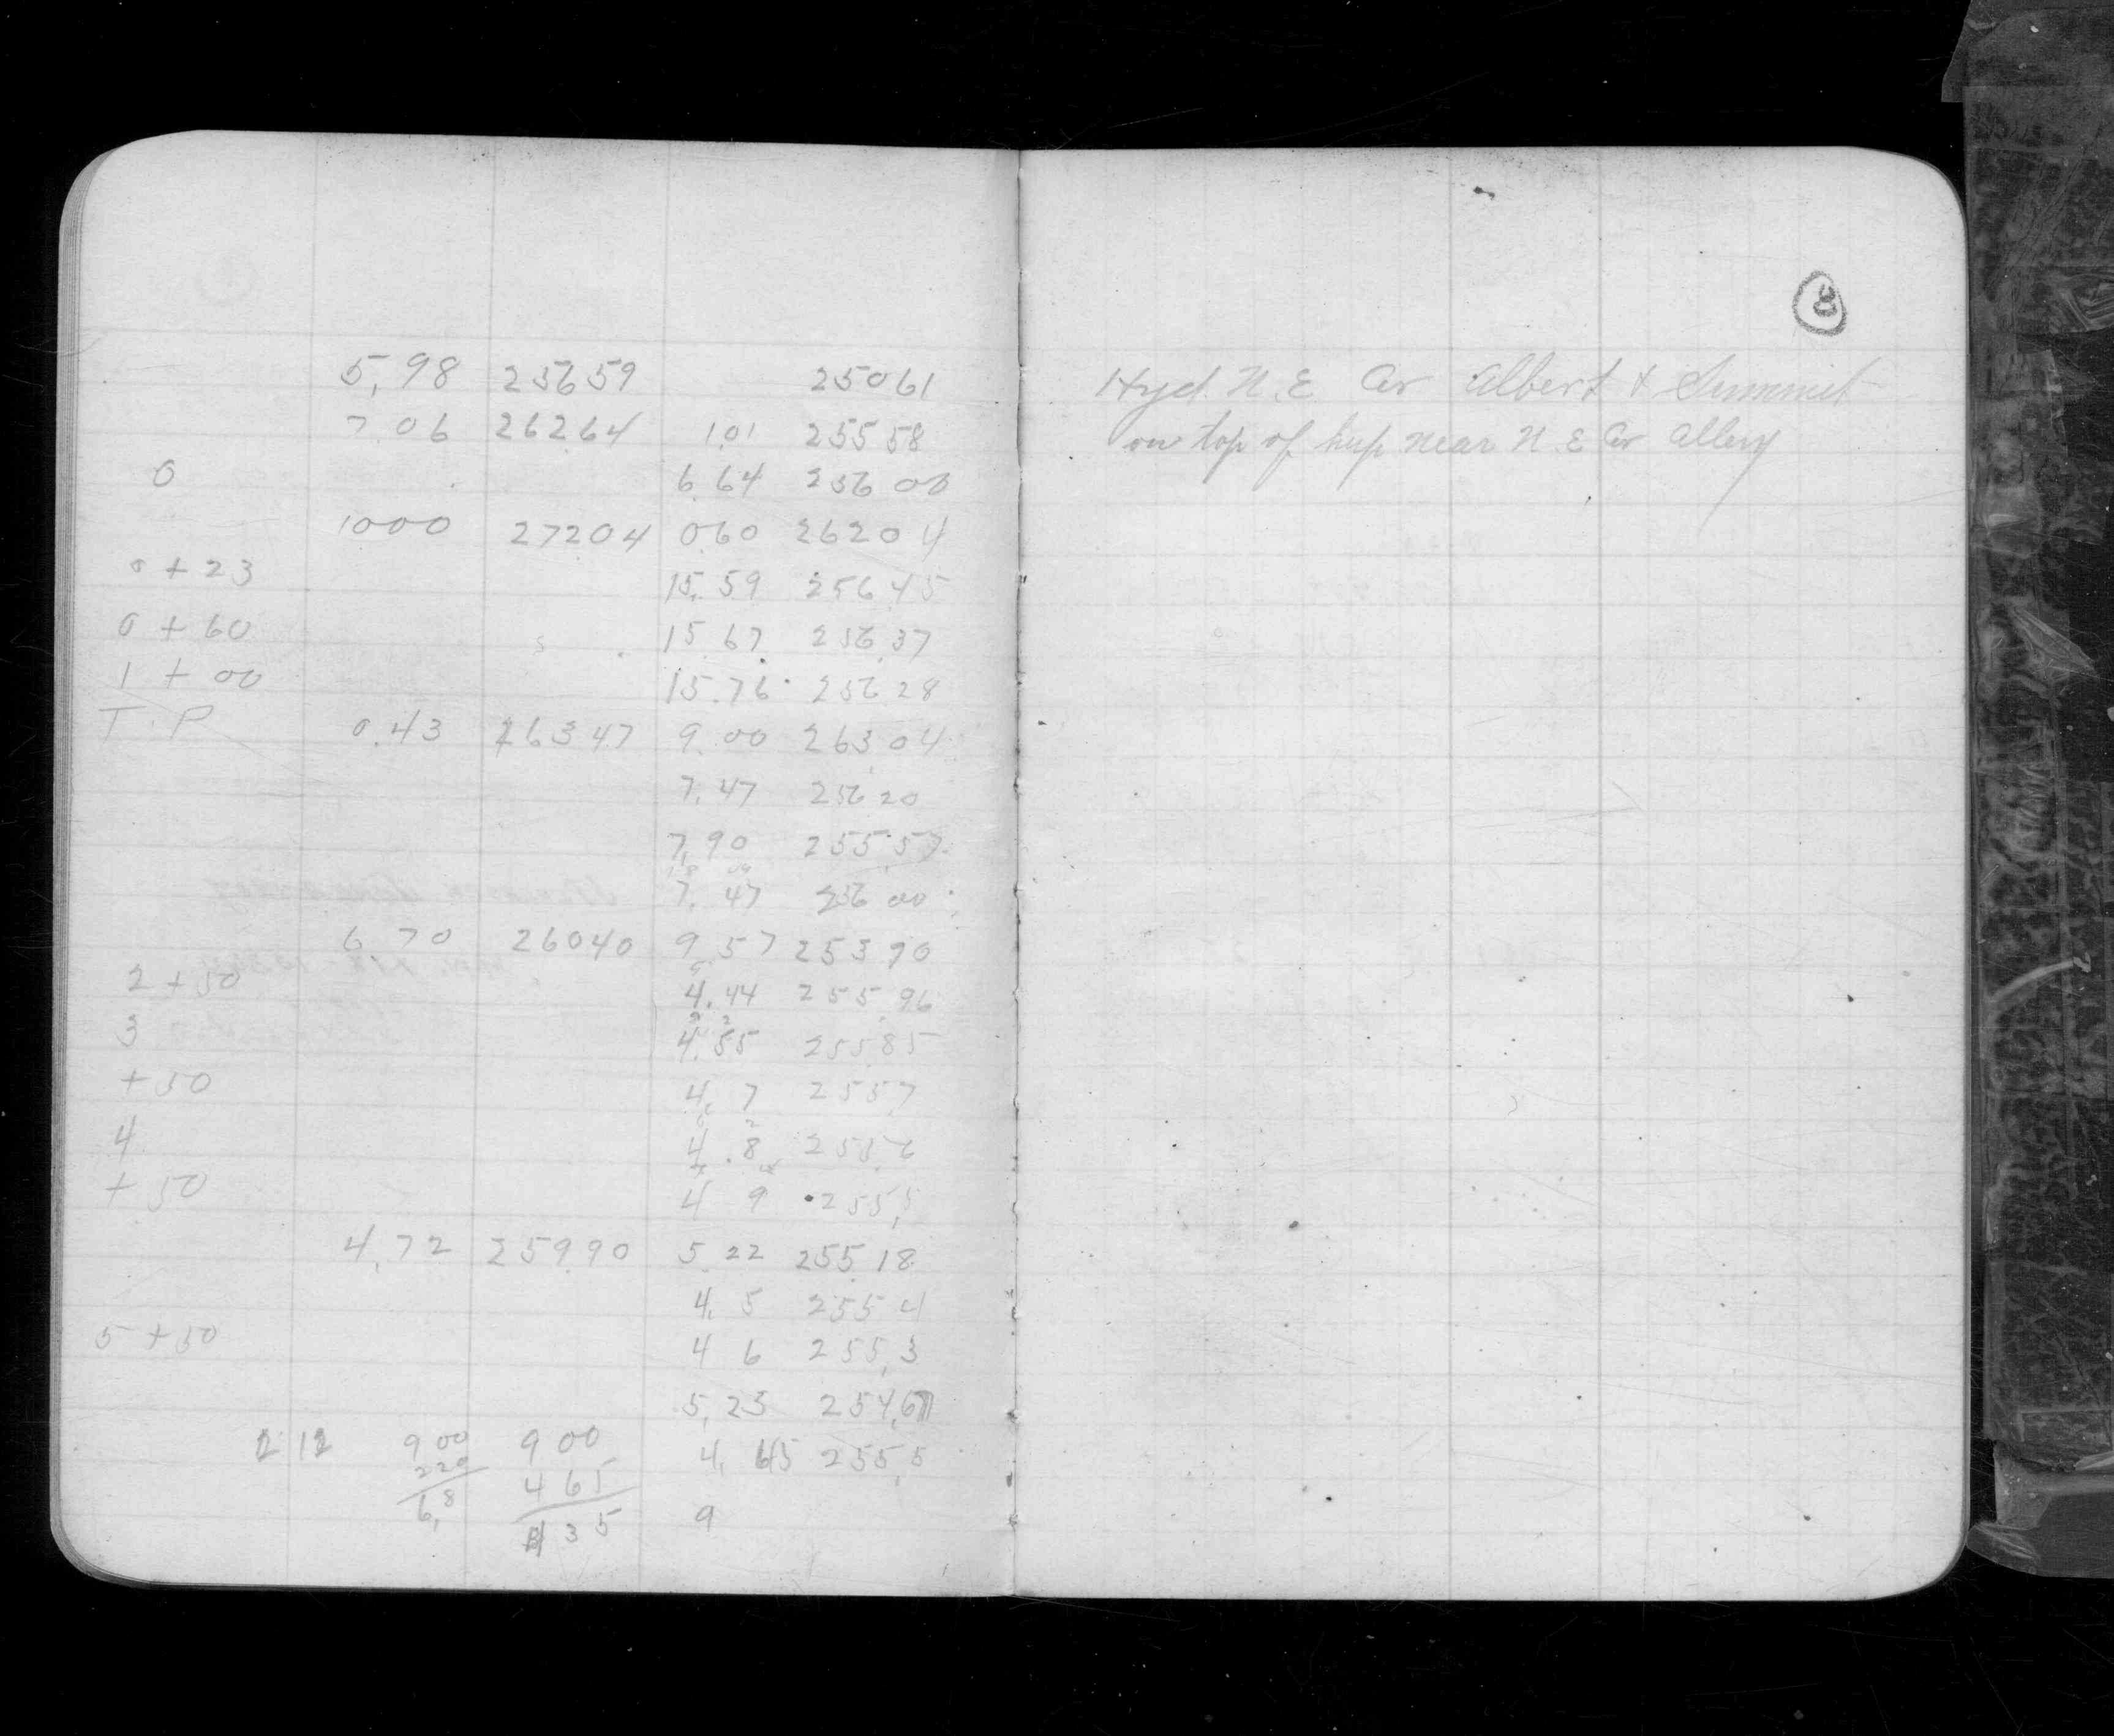 8
5.98 256 59 250 61
7.06 262.64 1.01 255 58
0 6.64 256 00
1000 272 04 0.60 262 04
0 + 23 15.59 256 45
0 + 60 15 67 256.37
1 + 00 15.76 256 28
T.P 0.43 263 47 9.00 263.04
7.47 256 20
7.90 255.57
7.47 256 00
6 70 260 40 9.57 253 90
2 + 50 4.44 255.96
3 4.55 255.85
+ 50 4.7 255.7
4 4.8 255.6
+ 50 4 9 255.5
4.72 259.90 5.22 255.18
4.5 255 4
5 + 50 4 6 255.3
5.23 254.67
2 12 9 00 9 00 4.45 255.5
2 20 4 65
6.8 4 35 9
Hyd. N.E. Cor Albert & Summit
on top of hup near N.E Cor Alley